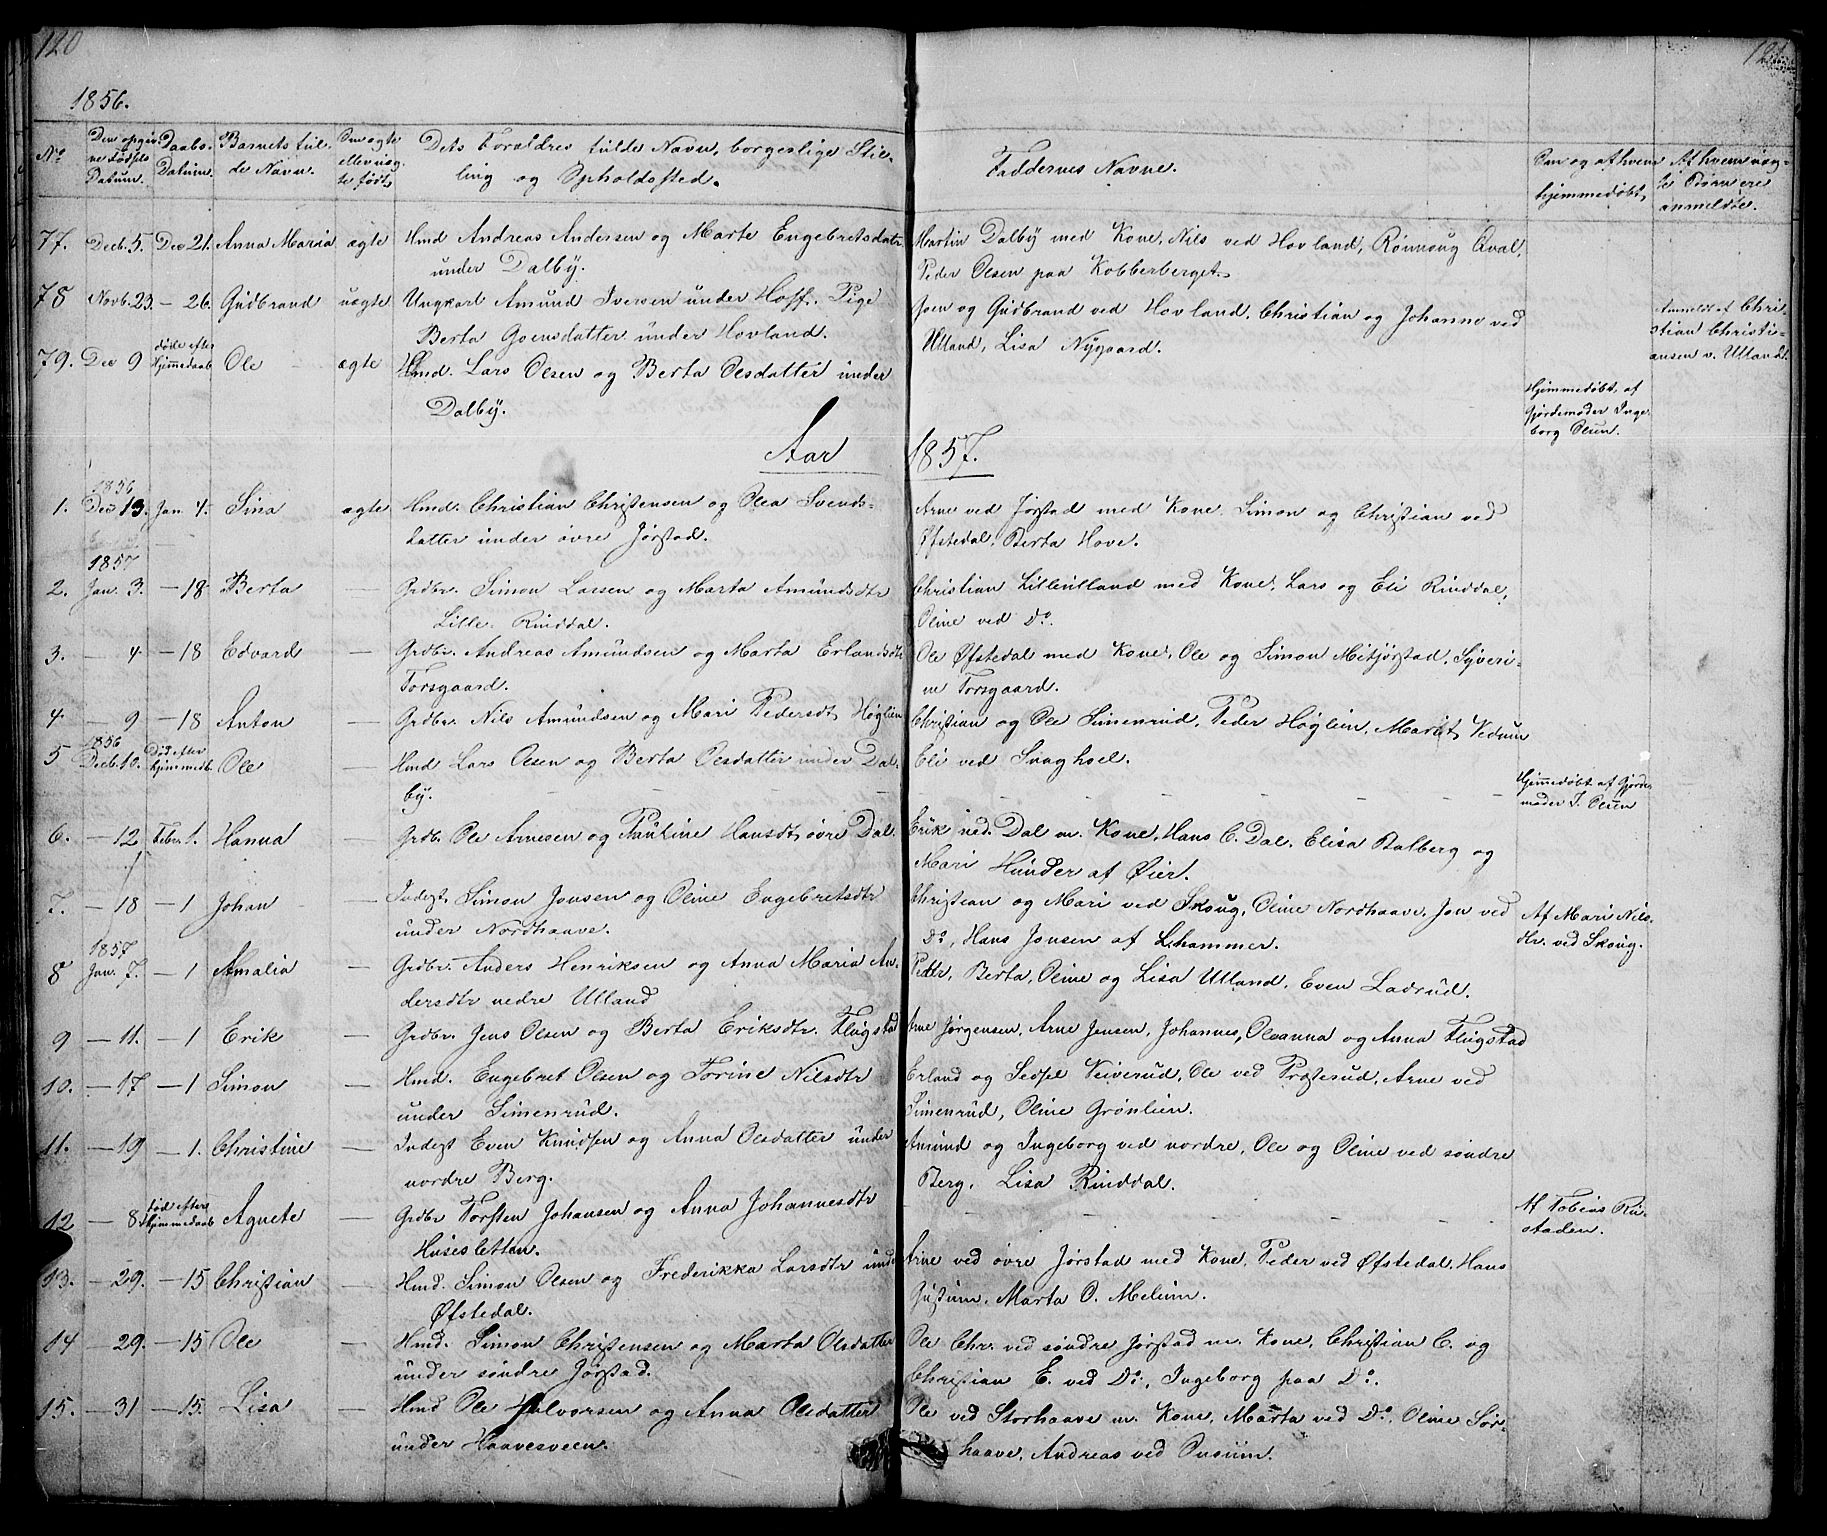 120
121.
1856.
No
Den opgiv-
ne Fødsels
Datum.
Daabs-
Datum.
Barnets ful-
de Navn.
Om ægte
eller uæg-
te født.
Dets Forældres fulde Navn, borgerlige Stil-
ling og Opholdssted.
Faddernes Navne.
Om og af hvem
hjemmedøbt.
Af hvem uæg-
te Børn ere
anmeldte.
77. Decb. 5. Dec 21. Anna Maria ægte Hmd Andreas Andersen og Marte Engebretsdatr
under Dalby.
Martin Dalby med Kone, Nils ved Hovland, Rønnoug Qval,
Peder Olsen paa Kobberberget.
78 Novb. 23. — 26. Gudbrand uægte Ungkarl Amund Iversen under Hoff. Pige
Berta Goensdatter under Hovland.
Joen og Gudbrand ved Hovland, Christian og Johanne ved
Ulland, Lisa Nygaard.
Anmeldt af Chri-
stian Christi-
ansen v. Ulland.
79. Dec 9 døde efter
Hjemmedaab Ole ægte Hmd. Lars Olsen og Berta Olsdatter under
Dalby.
Hjemmedøbt af
Gjordemoder Inge-
borg Olsen.
Aar 1857.
1856
1. Dec 13. Jan 4. Sina ægte Hmd. Christian Christensen og Olea Svends-
datter under øvre Jørstad.
Arne ved Jørstad med Kone, Simon og Christian ved
Øfstedal, Berta Hove.
1857
2. Jan. 3. — 18. Berta — Grdbr. Simon Larsen og Marta Amundsdtr
Lille Rinddal.
Christian Lilleulland med Kone, Lars og Eli Rinddal,
Oline ved Do.
3. — 4 — 18 Edvard — Grdbr. Andreas Amundsen og Marta Erlandsdtr
Torsgaard.
Ole Øfstedal med Kone, Ole og Simon Mitjørstad, Syveri-
ne Torsgaard.
4 — 9 — 18 Anton — Grdbr. Nils Amundsen og Mari Pedersdt. Høglien
Christian og Ole Simenrud, Peder Høglien, Marit Vedum
Eli ved Svaghoel.
1856
5 Decb. 10. Død efter
hjemmedb. Ole — Hmd Lars Olsen og Berta Olsdatter under Dal-
by.
Hjemmedøbt af Gjorde-
moder I. Olsen
6. — 12 Febr. 1. Hanna — Grdb. Ole Arnesen og Pauline Hansdt. øvre Dal.
Erik ned. Dal m. Kone, Hans C. Dal, Elisa Balberg og
Mari Hunder af Øier.
7. — 18 — 1 Johan — Inderst Simon Jonsen og Oline Engebretsdtr
under Nordhaave.
Christian og Mari ved Skoug, Oline Nordhaave, Jon ved
Do, Hans Jonsen af Lhammer.
Af Mari Nils-
dtr. ved Skoug.
1857
8 Jan. 7. — 1 Amalia — Grdbr. Anders Henriksen og Anna Maria An-
dersdtr nedre Ulland
Peder, Berta, Oline og Lisa Ulland, Even Ladrud.
9 — 11. — 1 Erik — Grdbr. Jens Olsen og Berta Eriksdtr. Flugstad
Arne Jørgensen, Arne Jensen, Johannes, Oleanna og Anna Flugstad
10. — 17 — 1 Simon — Hmd. Engebret Olsen og Torine Nilsdtr
under Simenrud.
Erland og Sedsel Veiverud, Ole ved Prøsterud, Arne ved
Simenrud, Oline Grønlien.
11. — 19 — 1. Christine — Inderst Even Knudsen og Anna Olsdatter under
nordre Berg.
Amund og Ingeborg ved nordre, Ole og Oline ved søndre
Berg, Lisa Rinddal.
12 — 8. Død efter
hjemmedaab Agnete — Grdbr Torsten Johansen og Anna Johannesdtr
Husesletten.
Af Tobias Ru-
staden.
13. — 29. — 15 Christian — Hmd. Simon Olsen og Frederikka Larsdtr und
Øfstedal.
Arne ved øvre Jørstad med Kone, Peder ved Øfstedal, Hans
Justum, Marta O. Melum.
14 — 29. — 15 Ole — Hmd. Simon Christensen og Marta Olsdatter
under søndre Jørstad.
Ole Chr. ved søndre Jørstad m. Kone, Christian C. og
Christian E. ved Do., Ingeborg paa Do.
15. — 31 — 15. Lisa — Hmd Ole Halvorsen og Anna Olsdatter
under Haavesveen.
Ole ved Storhaave m. Kone, Marta ved Do, Oline Sør-
haave, Andreas ved Onsum.